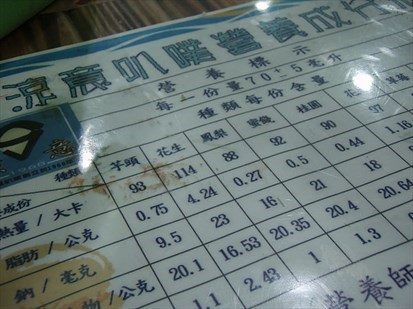 涼意叭噗營養成分
營養標示
每一份量70±5毫升
種類每份含量
種類 芋頭 花生 鳳梨 桂圓
成份
熱量/大卡 93 114 88 92 90
脂肪/公克 0.75 4.24 0.27 0.5 0.44
鈉/毫克 9.5 23 16 21 18
物/公克 20.1 16.53 20.35 20.4 20.64
1.1 2.43 1 1 1.3
營養師